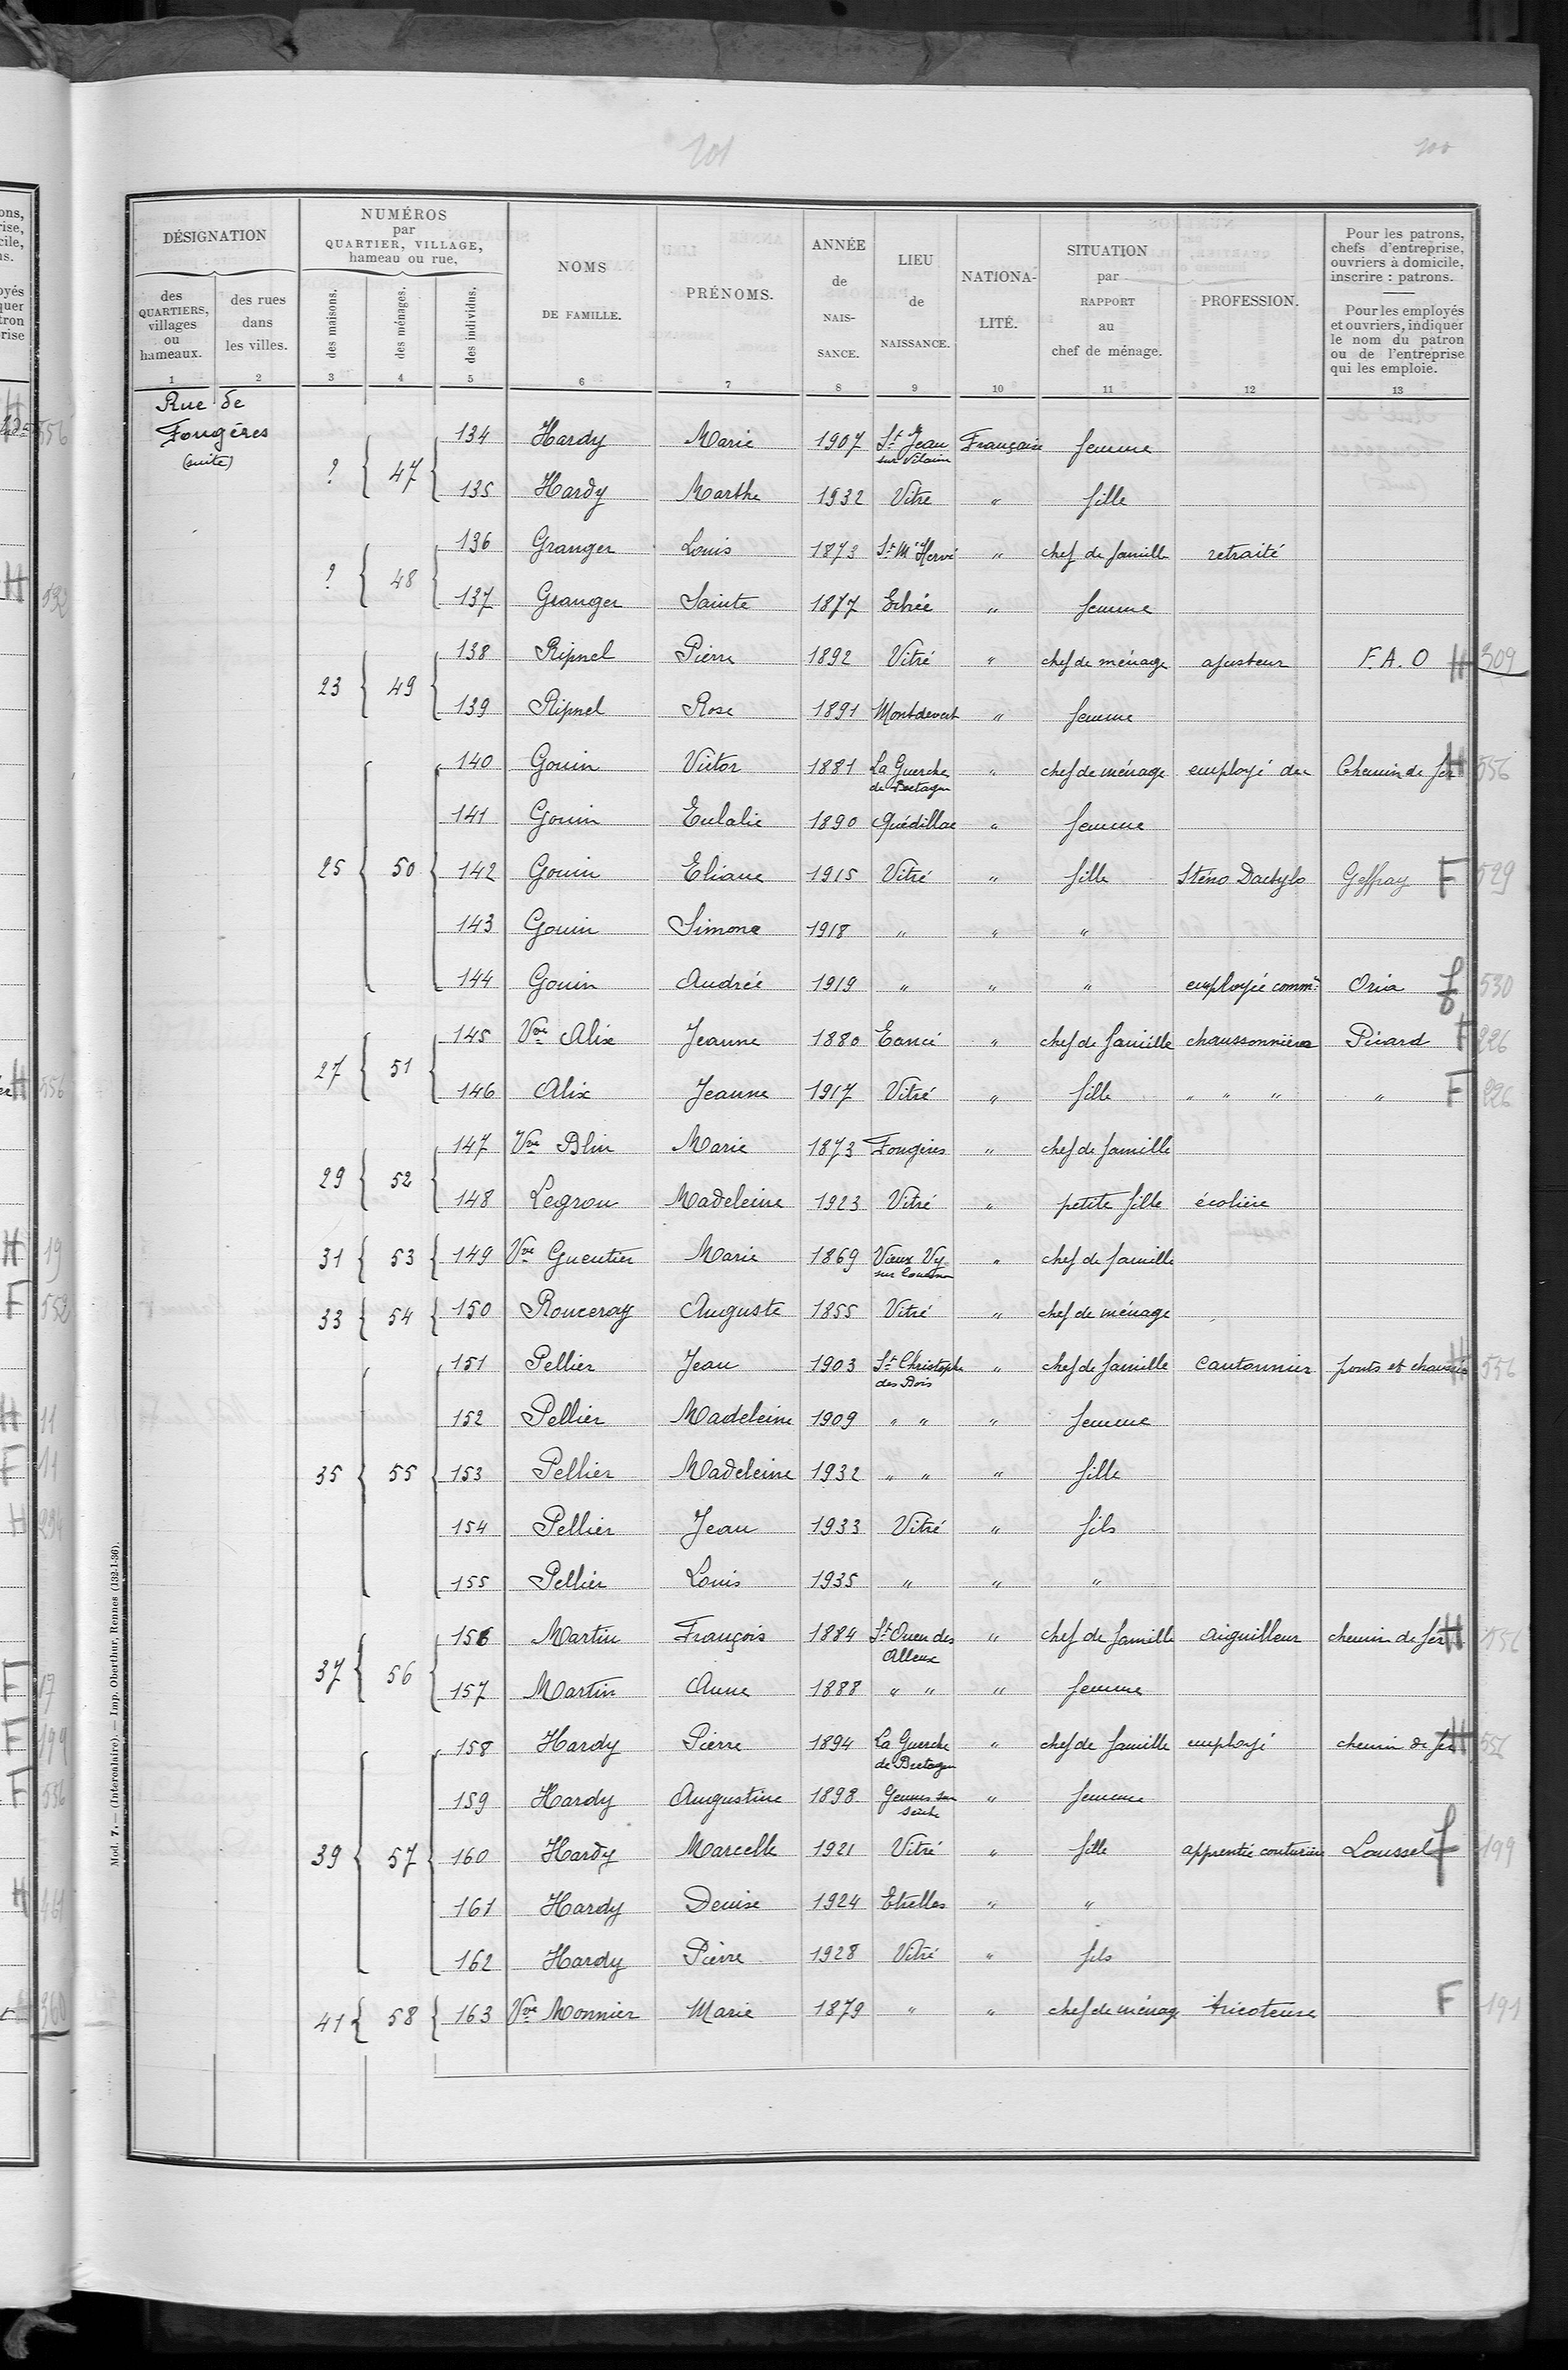 201
100
DÉSIGNATION
NUMÉROS
par
QUARTIER, VILLAGE,
hameau ou rue.
des
QUARTIERS,
villages
ou
hameaux.
des rues
dans
les villes.
des maisons.
des ménages.
des individus.
NOMS
DE FAMILLE.
PRÉNOMS.
ANNÉE
de
NAIS-
SANCE.
LIEU
de
NAISSANCE.
NATIONA-
LITÉ.
SITUATION
par
RAPPORT
au
chef de ménage.
PROFESSION.
Pour les patrons,
chefs d'entreprise,
ouvriers à domicile,
inscrire : patrons.
Pour les employés
et ouvriers, indiquer
le nom du patron
ou de l'entreprise
qui les emploie.
1 2 3 4 5 6 7 8 9 10 11 12 13
Rue de
Fougères
(suite)
? 47 134 Hardy Marie 1907 St Jean sur Vilaine Française femme
135 Hardy Marthe 1932 Vitre " fille
? 48 136 Granger Louis 1873 St M' Hervé " chef de famille retraité
137 Granger Sainte 1877 " femme
23 49 138 Ripnel Pierre 1892 Vitré " chef de ménage ajusteur F.A.O H 309
139 Ripnel Rose 1891 Montdevert " femme
25 50 140 Gouin Victor 1881 La Guerche de Bretagne " chef de ménage employé de Chemin de fer H 556
141 Gouin Eulalie 1890 Quédillac " femme
142 Gouin Eliane 1915 Vitré " fille Sténo Dactylo Geffray F 529
143 Gouin Simone 1918 " " "
144 Gouin Andrée 1919 " " " employée comm. Oria f 530
27 51 145 Vve Alix Jeanne 1880 Eancé " chef de famille chaussonnière Picard F 226
146 Alix Jeanne 1917 Vitré " fille " " " " F 226
29 52 147 Vve Blin Marie 1873 Fougères " chef de famille
148 Legrou Madeleine 1923 Vitré " petite fille écolière
31 53 149 Vve Gueutier Marie 1869 Vieux Vy sur Couesnon " chef de famille
33 54 150 Ronceray Auguste 1855 Vitré " chef de ménage
35 55 151 Pellier Jean 1903 St Christophe des Bois " chef de famille cantonnier ponts et chaussées H 556
152 Pellier Madeleine 1909 " " " femme
153 Pellier Madeleine 1932 " " " fille
154 Pellier Jean 1933 Vitré " fils
155 Pellier Louis 1935 " " "
37 56 156 Martin François 1884 St Ouen des Alleux " chef de famille aiguilleur chemin de fer H 556
157 Martin Anne 1888 " " " femme
39 57 158 Hardy Pierre 1894 La Guerche de Bretagne " chef de famille employé chemin de fer H 556
159 Hardy Augustine 1898 Gennes sur Seiche " femme
160 Hardy Marcelle 1921 Vitré " fille apprentie couturière Loussel f 199
161 Hardy Denise 1924 Etrelles " "
162 Hardy Pierre 1928 Vitré " fils
41 58 163 Vve Monnier Marie 1879 " " chef de ménage tricoteuse F 191
Mod. 7. — (Intercalaire). — Imp. Oberthur, Rennes (132-1-36).